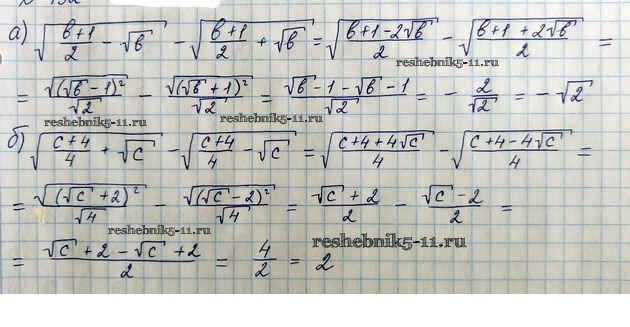 а) √((b+1)/2 - √b) - √((b+1)/2 + √b) = √((b+1-2√b)/2) - √((b+1+2√b)/2) =
reshebnik5-11.ru
= √((√b-1)²)/√2 - √((√b+1)²)/√2 = (√b-1-√b-1)/√2 = - 2/√2 = -√2
reshebnik5-11.ru
reshebnik5-11.ru
б) √((c+4)/4 + √c) - √((c+4)/4 - √c) = √((c+4+4√c)/4) - √((c+4-4√c)/4) =
= √((√c+2)²)/√4 - √((√c-2)²)/√4 = (√c+2)/2 - (√c-2)/2 =
reshebnik5-11.ru
reshebnik5-11.ru
= (√c+2-√c+2)/2 = 4/2 = 2